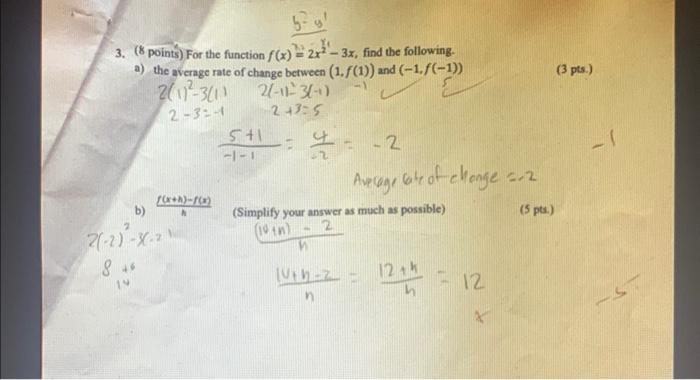 3. (8 points) For the function f(x) = 2x² – 3x, find the following.
a) the average rate of change between (1, f(1)) and (−1, f(−1)) (3 pts.)
2(1)²-3(1) 2(-1)²-3(-1) -1 5
2-3=-1 2+3=5
5+1 / -1-1 = 4 / -2 = -2 -1
Average rate of change = -2
b) f(x+h)−f(x) / h (Simplify your answer as much as possible) (5 pts.)
(14+h) - 2 / h
2(-2)²-3(-2)
8 +6
14
14+h-2 / h = 12+h / h = 12
-5